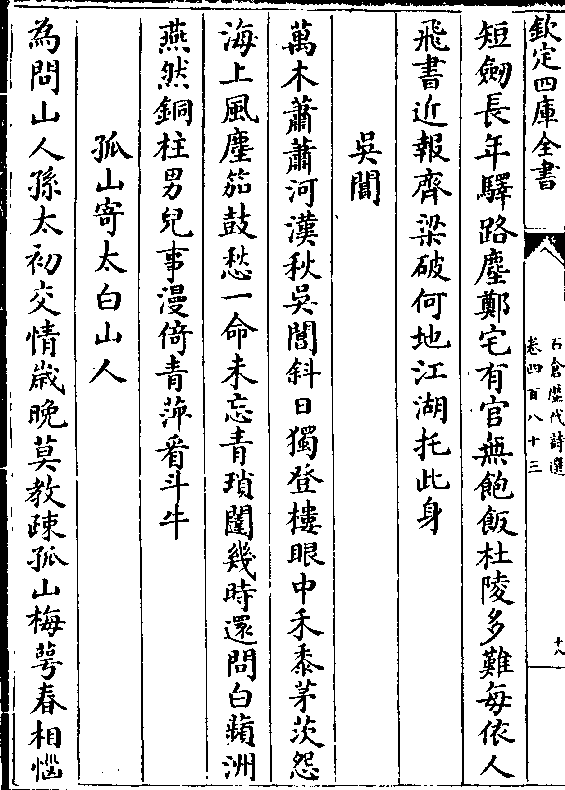 欽定四庫全書
石倉歷代詩選
卷四百八十三
十八
短劒長年驛路塵鄭宅有官無飽飯杜陵多難每依人
飛書近報齊梁破何地江湖托此身
吳閶
萬木蕭蕭河漢秋吳閶斜日獨登樓眼中禾黍茅茨怨
海上風塵笳鼓愁一命未忘青瑣闥幾時還問白蘋洲
燕然銅柱男兒事漫倚青萍看斗牛
孤山寄太白山人
為問山人孫太初交情歲晚莫教疎孤山梅萼春相惱